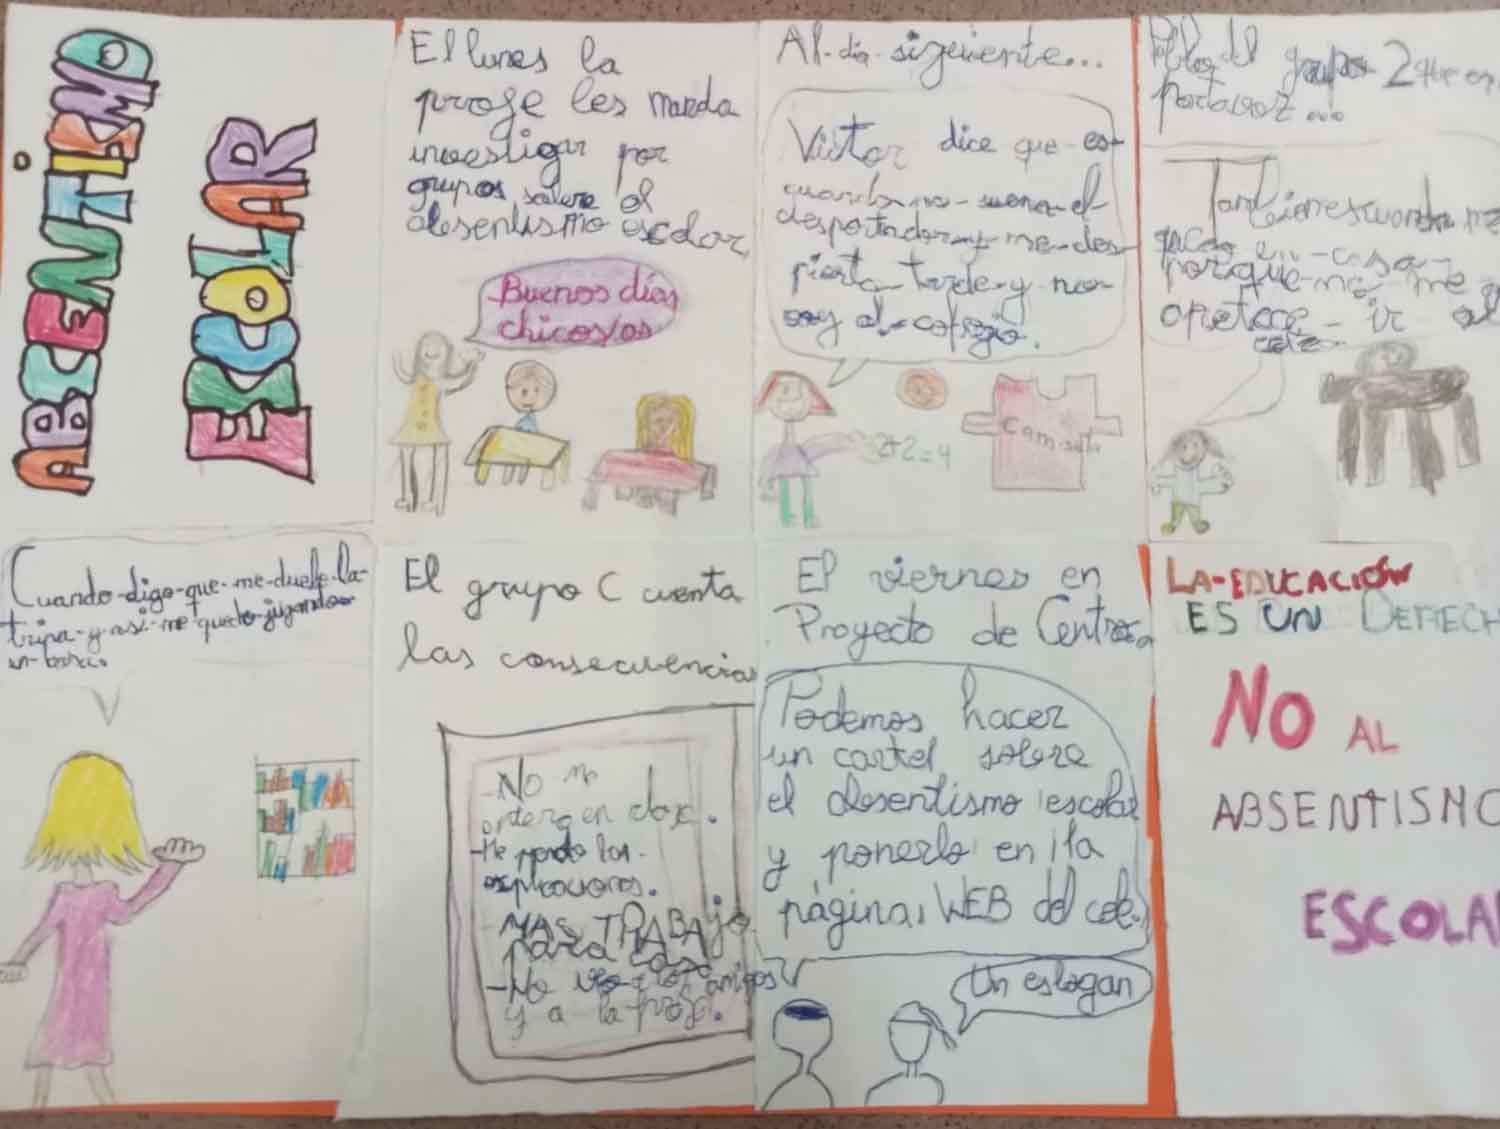 ABSCENTISMO
ESCOLAR
El lunes la
profe les manda
investigar por
grupos sobre el
absentismo escolar
Buenos días
chicos/as
Al-día-siguiente...
Victor dice que es-
cuando-no-suena-el-
despertador-y-me-des-
pierto-tarde-y-no-
voy al-colegio.
del grupo 2 que es
portavoz...
También es cuando me
quedo en-casa-
porque-no me
apetece-ir al
cole-
2+2=4
Camiseta
Cuando-digo-que-me-duele-la-
tripa-y-asi-me-quedo-jugando
en-casa.
El grupo C cuenta
las consecuencias
-No m
entero en clase.
-Me pierdo las
explicaciones.
MAS TRABAJO
para casa
-No veo a los amigos
y a-la-profe.
El viernes en
Proyecto de Centro
Podemos hacer
un cartel sobre
el absentismo escolar
y ponerlo en la
página WEB del cole.
Un eslogan
LA-EDUCACIÓN
ES UN DERECH
NO AL
ABSENTISMO
ESCOLA